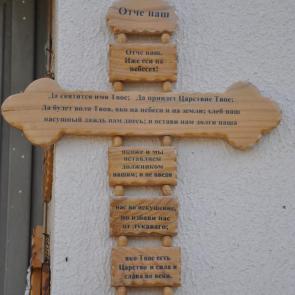 Отче наш
Отче наш.
Иже еси на
небесех!
Да святится имя Твое; Да приидет Царствие Твое;
Да будет воля Твоя, яко на небеси и на земли; хлеб наш
насущный даждь нам днесь; и остави нам долги наша
якоже и мы
оставляем
должником
нашим; и не введи
нас во искушение,
но избави нас
от лукаваго;
яко Твое есть
Царство и сила и
слава во веки.